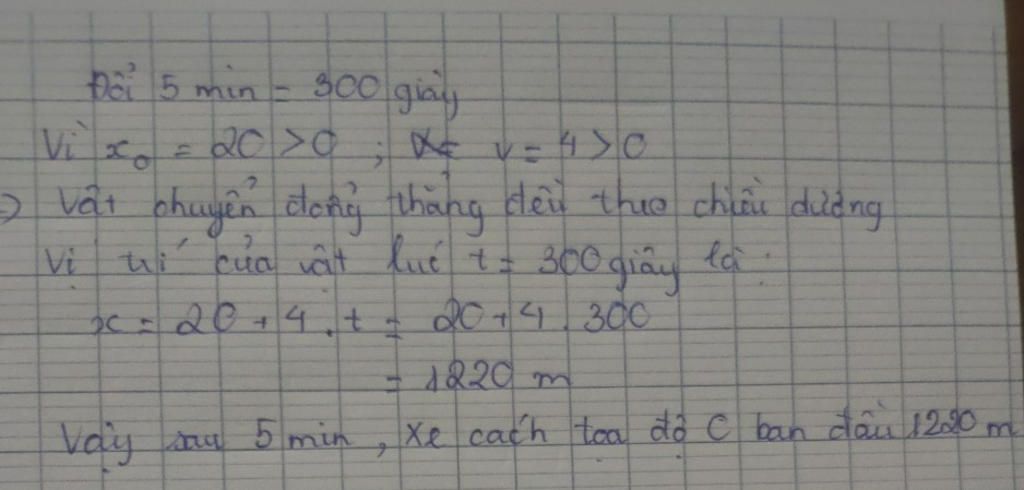 Đổi 5 min = 300 giây
Vì x₀ = 20 > 0 ; v = 4 > 0
=> Vật chuyển động thẳng đều theo chiều dương
Vị trí của vật lúc t = 300 giây là :
x = 20 + 4 . t = 20 + 4 . 300
= 1220 m
Vậy sau 5 min , xe cách tọa độ O ban đầu 1220 m